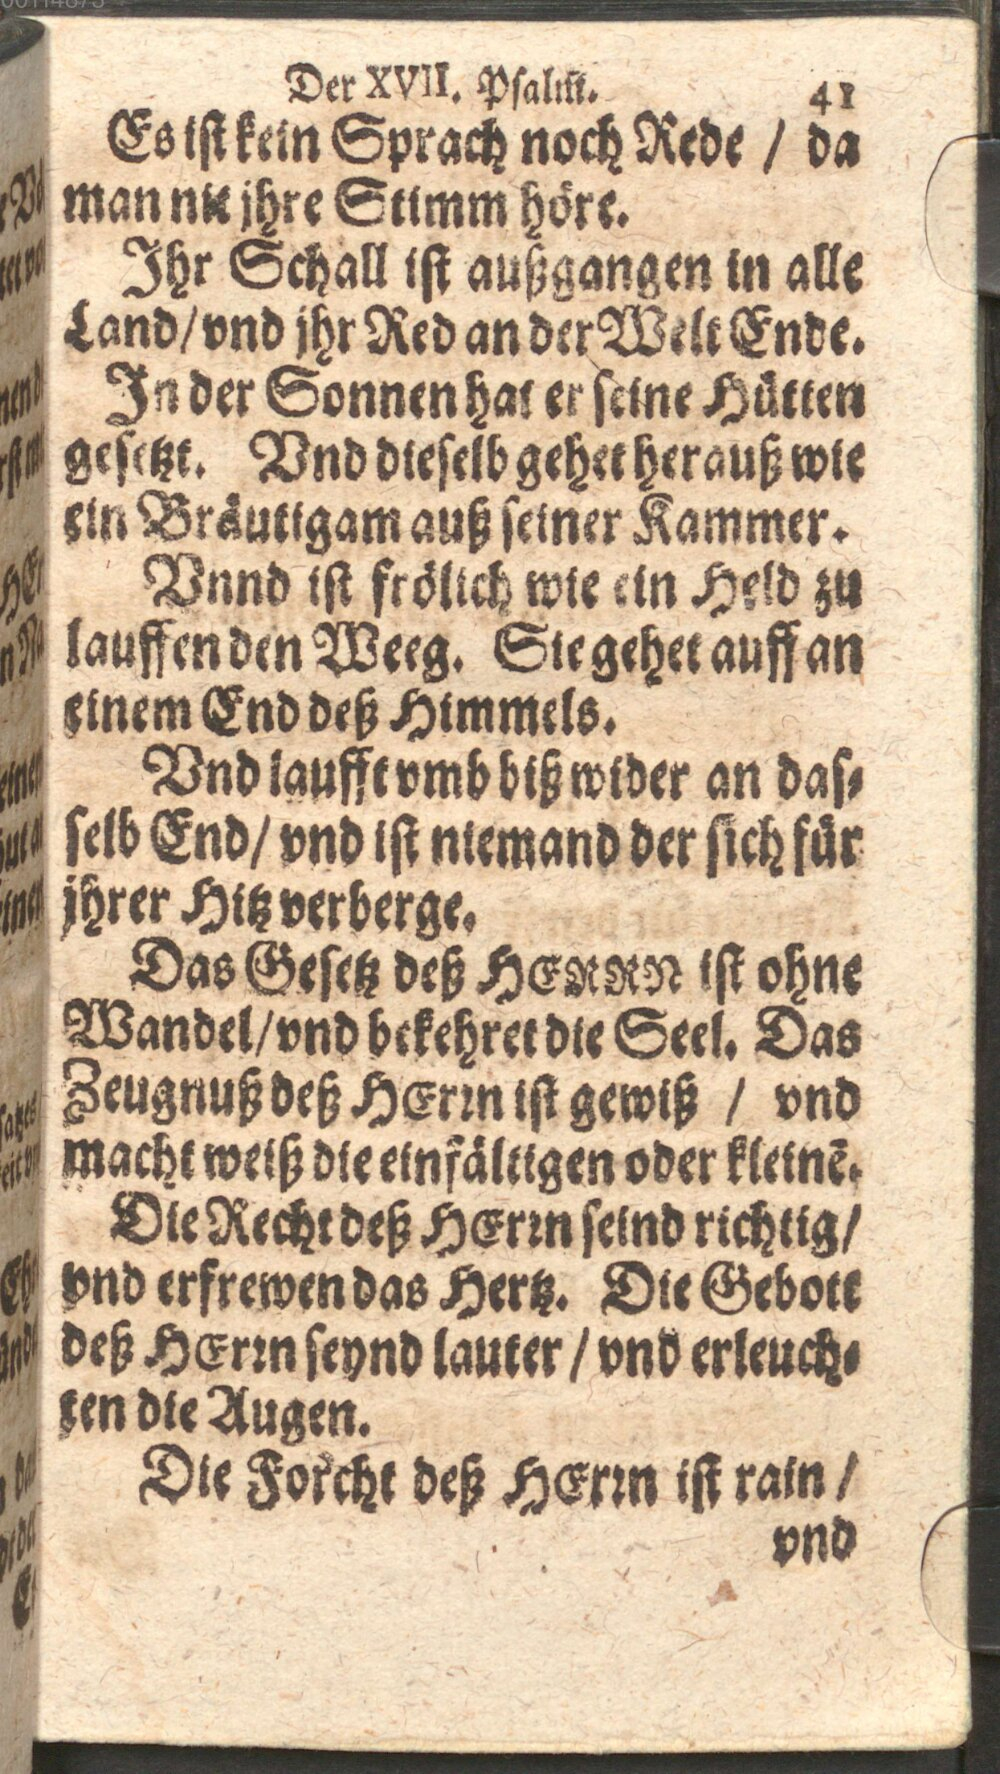 Der XVII. Psalm. 41
Es ist kein Sprach noch Rede / da
man nit jhre Stimm höre.
Ihr Schall ist außgangen in alle
Land / vnd jhr Red an der Welt Ende.
In der Sonnen hat er seine Hütten
gesetzt. Vnd dieselb gehet herauß wie
ein Bräutigam auß seiner Kammer.
Vnnd ist frölich wie ein Held zu
lauffen den Weeg. Sie gehet auff an
einem End deß Himmels.
Vnd laufft vmb biß wider an das-
selb End / vnd ist niemand der sich für
jhrer Hitz verberge.
Das Gesetz deß HERRN ist ohne
Wandel / vnd bekehret die Seel. Das
Zeugnuß deß HErrn ist gewiß / vnd
macht weiß die einfältigen oder kleinē.
Die Recht deß HErrn seind richtig /
vnd erfrewen das Hertz. Die Gebott
deß HErrn seynd lauter / vnd erleuch-
ten die Augen.
Die Forcht deß HErrn ist rain /
vnd